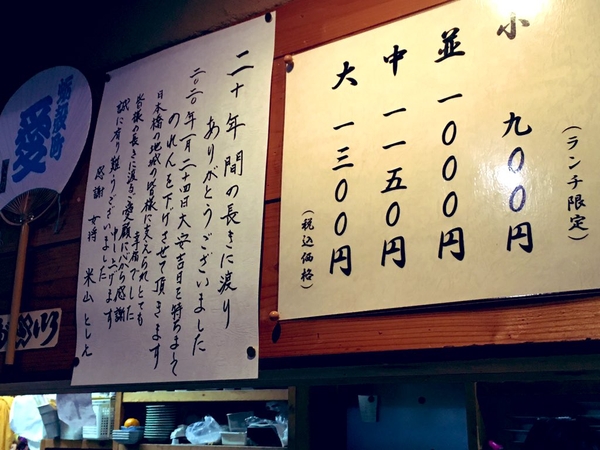 小 九〇〇円
(ランチ限定)
並 一〇〇〇円
中 一一五〇円
大 一三〇〇円
(税込価格)
二十年間の長きに渡り
ありがとうございました
二〇二〇年一月二十四日大安吉日を持ちまして
のれんを下げさせて頂きます
日本橋の地域の皆様に支えられとても
幸福でした
皆様の長きに渡るご愛顧に心から感謝
申し上げます
誠に有り難うございました
感謝 女将 米山 とし

愛